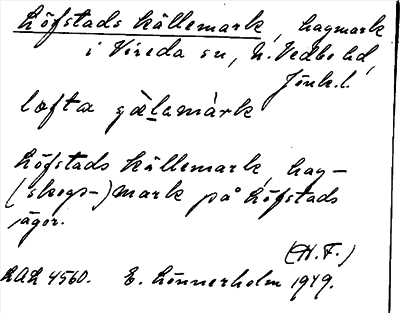 Löfstads källemark, hagmark
i Vireda sn, N. Vedbo hd,
Jönk.l.
lœfta gàlamàrk
Löfstads källemark, hag-
(skogs-)mark på Löfstads
ägor.
(H.F.)
ULA 4560. E. Lönnerholm 1949.